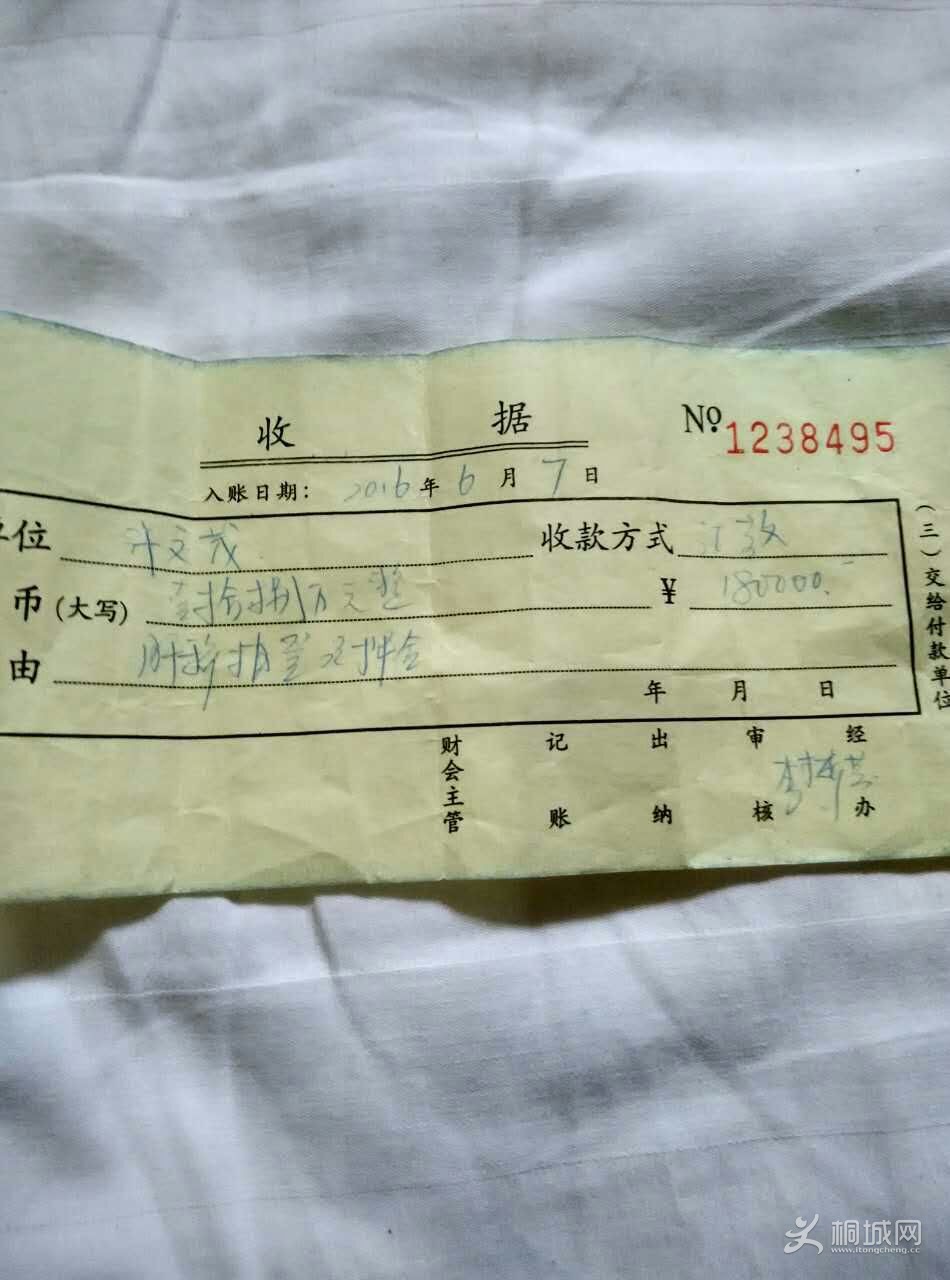 收 据 Nº 1238495
入账日期: 2016年6月7日
位 文茂 收款方式
币(大写) 壹拾捌万元整 ¥ 180000.
由 金
年 月 日
(三)交给付款单位
财会主管 记账 出纳 审核 经办
李
桐城网
www.itongcheng.cc